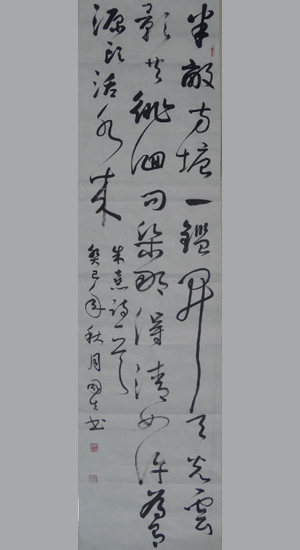 半畝方塘一鑑開天光雲
影共徘徊问渠那得清如许為有
源头活水来
朱熹詩一首
癸巳年秋月书